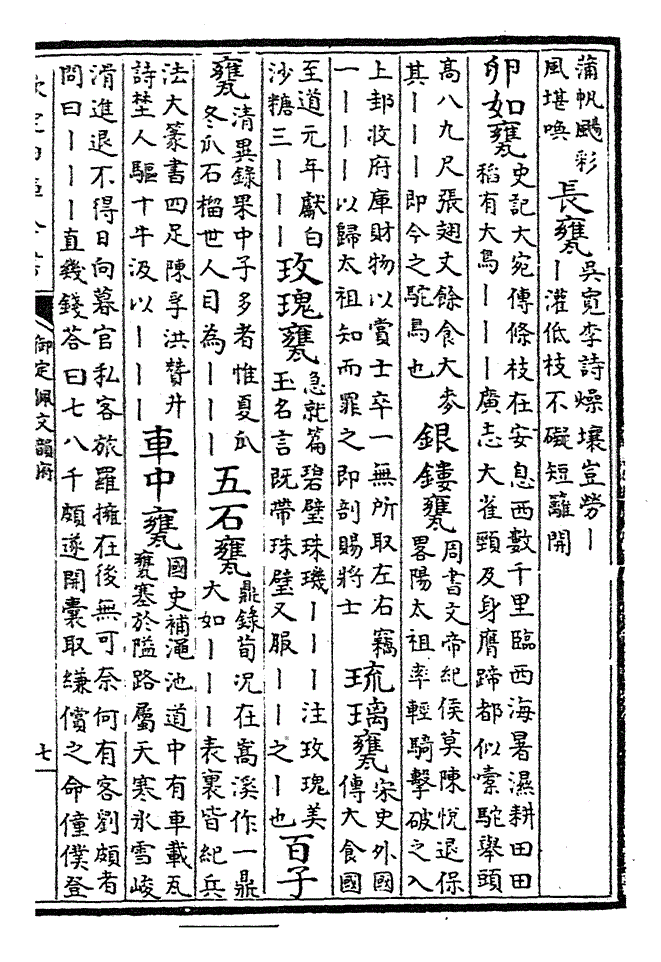 蒲帆颺彩
風堪喚
長甕
吳寬李詩燥壤豈勞丨
丨灌低枝不礙短籬開
卵如甕
史記大宛傳條枝在安息西數千里臨西海暑濕耕田田
稻有大鳥丨丨丨廣志大雀頸及身膺蹄都似橐駝舉頭
高八九尺張翅丈餘食大麥
其丨丨丨即今之駝鳥也
銀鏤甕
周書文帝紀侯莫陳悅退保
畧陽太祖率輕騎擊破之入
上邽收府庫財物以賞士卒一無所取左右竊
一丨丨丨以歸太祖知而罪之即剖賜將士
琉璃甕
宋史外國
傳大食國
至道元年獻白
沙糖三丨丨丨
玫瑰甕
急就篇碧璧珠璣丨丨丨注玫瑰美
玉名言既帶珠璧又服丨丨之丨也
百子
甕
清異錄果中子多者惟夏瓜
冬瓜石榴世人目為丨丨丨
五石甕
鼎錄荀况在嵩溪作一鼎
大如丨丨丨表裏皆紀兵
法大篆書四足陳孚洪贊井
詩埜人驅十牛汲以丨丨丨
車中甕
國史補澠池道中有車載瓦
甕塞於隘路屬天寒氷雪峻
滑進退不得日向暮官私客旅羅擁在後無可奈何有客劉頗者
問曰丨丨丨直幾錢荅曰七八千頗遂開囊取縑償之命僮僕登
欽定四庫全書
御定佩文韻府
七